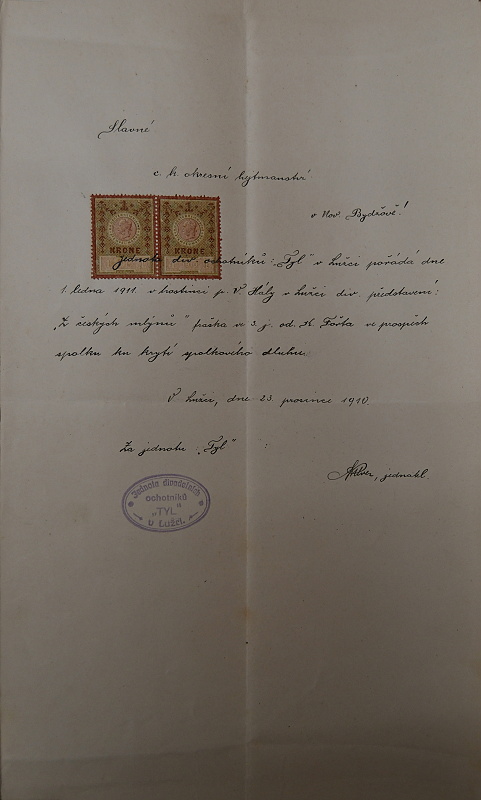 Slavné
c. k. okresní hejtmanství
v Nov. Bydžově!
1 1
KRONE KRONE
Jednota div. ochotníků: „Tyl" v Lužci pořádá dne
1. ledna 1911. v hostinci p. V. v Lužci div. představení:
„Z českých mlýnů" fraška ve 3. j. od. K. Fořta ve prospěch
spolku ku krytí spolkového dluhu.
V Lužci, dne 23. prosince 1910.
Za jednotu „Tyl" :
jednatel.
Jednota divadelních
ochotníků
„TYL"
v Lužci.